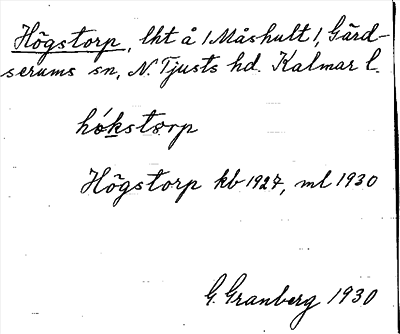 Högstorp, lht å /Måshult/, Gärd-
serums sn, N. Tjusts hd. Kalmar l.
hókstorp
Högstorp kb 1927, ml 1930
G. Granberg 1930